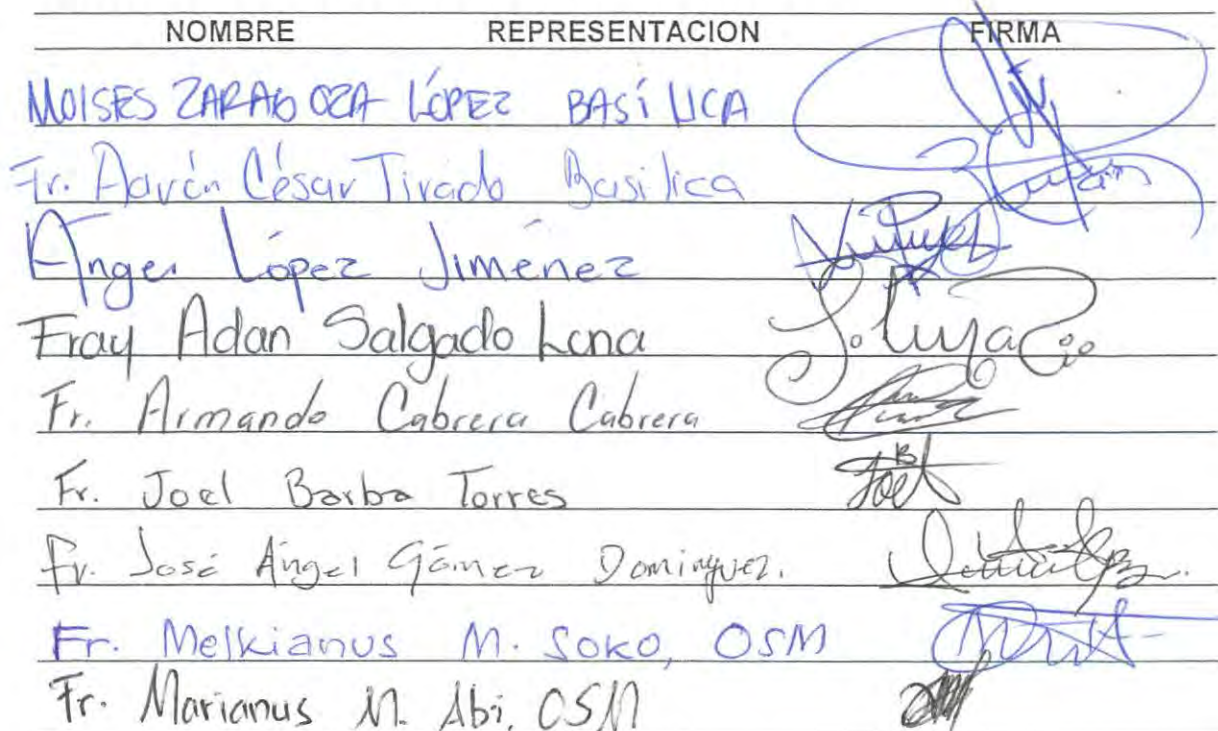 NOMBRE REPRESENTACION FIRMA
MOISES ZARAGOZA LÓPEZ BASÍLICA
Fr. Aarón César Tirado Basilica
Ángel López Jiménez
Fray Adan Salgado Lona
Fr. Armando Cabrera Cabrera
Fr. Joel Barba Torres Joel
Fr. José Ángel Gómez Dominguez.
Fr. Melkianus M. SOKO, OSM
Fr. Marianus M. Abi, OSM